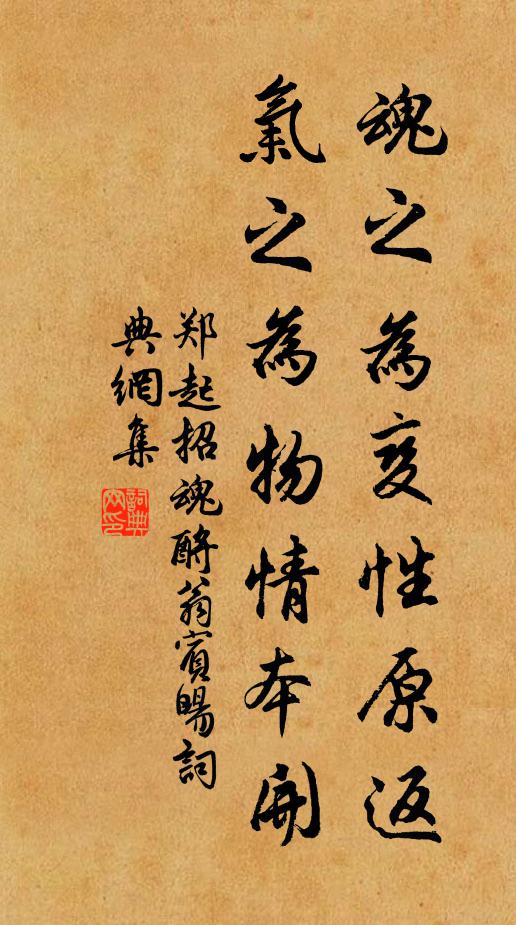 魂之為变性原返
氣之為物情本開
郑起招魂酹翁賓暘詞
典網集
詞典网印